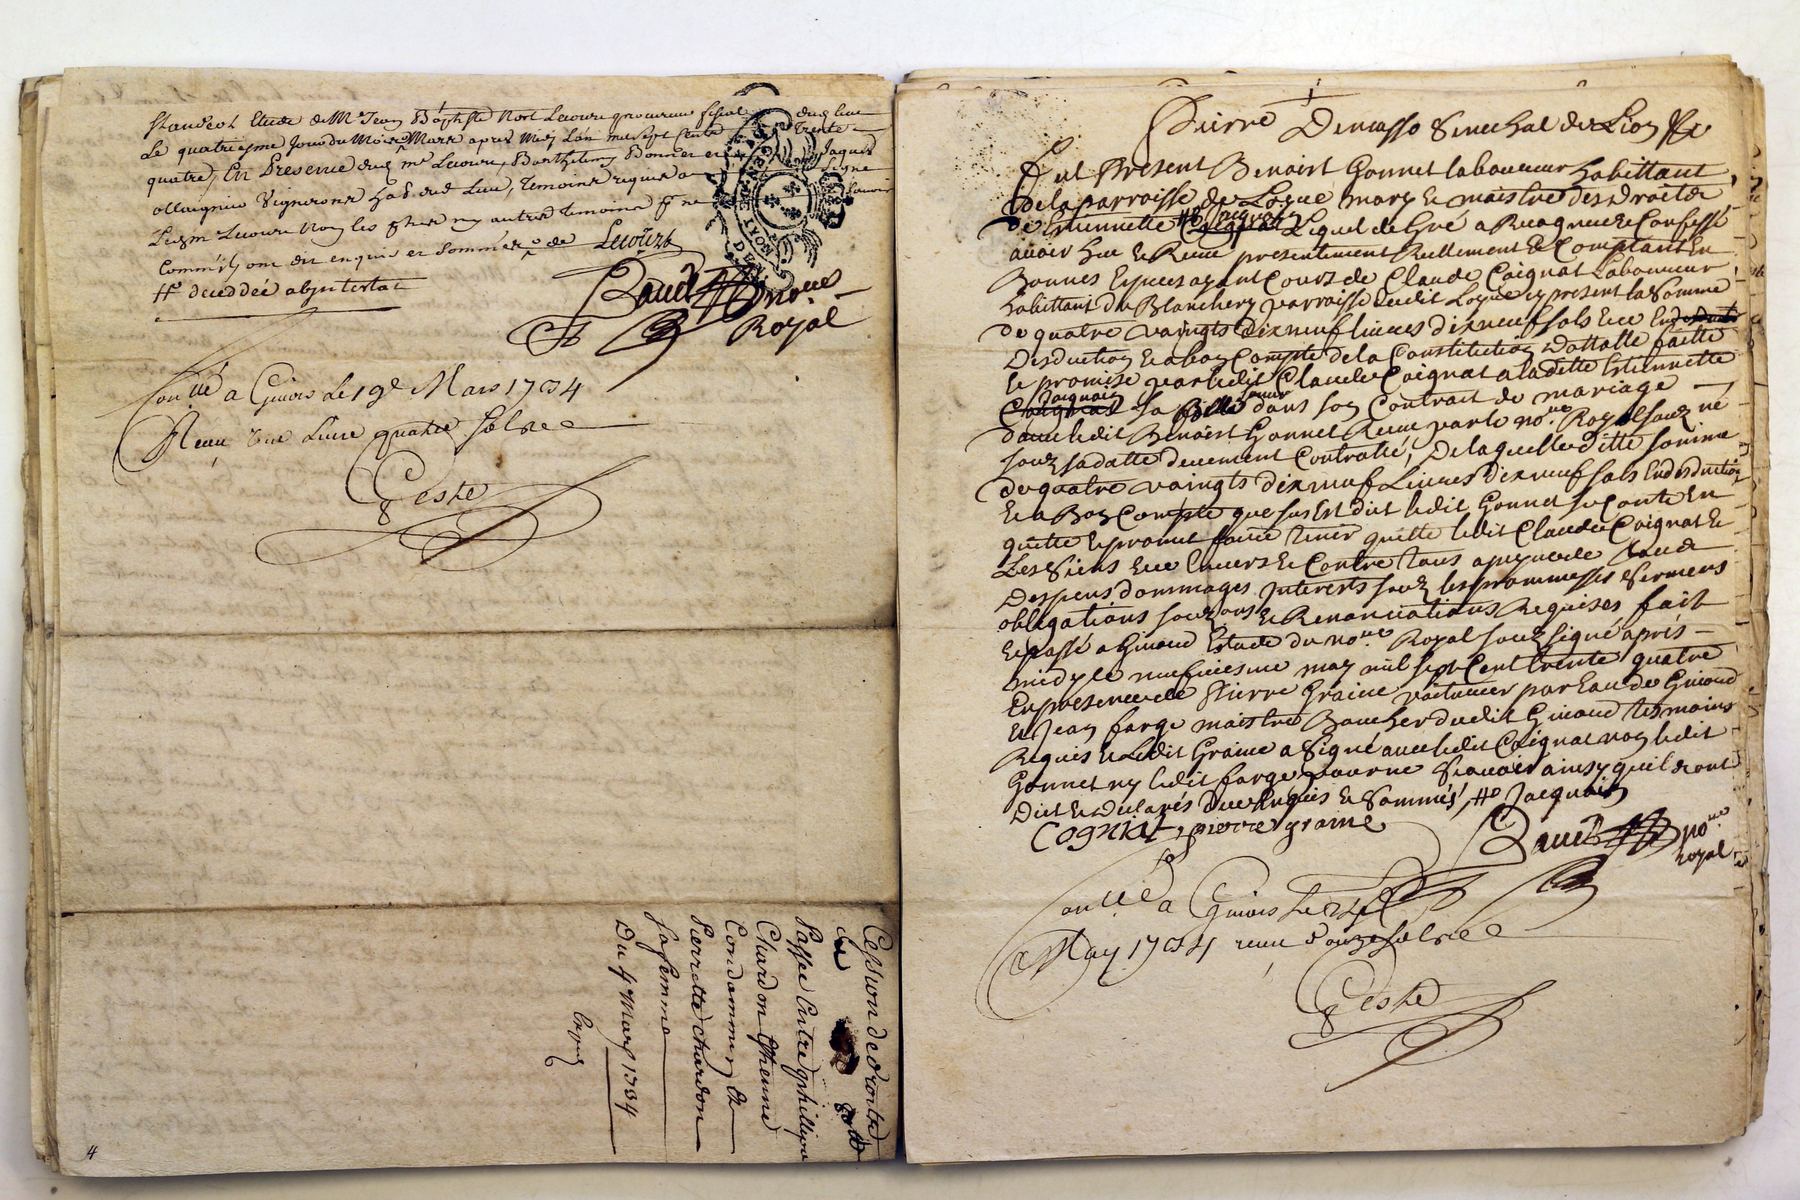 Etude de Mr Jean Baptiste procureur
Le quatriesme Jour du Mois Mars apres Midy L'an mil sept Cents Trente
quatre, En Presence dud. mr Lecourt, Barthelemy Bonnet et Jaques
Vignerons hab. dud. Lieu, Temoins requis Signe
Led. mr Lecourt Non les ny autres temoins pr ne scavoir
Comm'ils ont dit enquis et sommés de Lecourt
deceddée abjntestat
no.re
Royal
GEN. LYON
Con.llé a Givors Le 19e Mars 1734
Receu une Livre quatre sols
Geste
Cession de droits
Passee Entre phillipe
Chardon Estienne
Condamin &
Pierrette Chardon
sa femme
Du 4 Mars 1734
Exped
4
Pierre Demasso Senechal de Lion &c
Fut Present Benoist Gonnet laboureur habittant
de la parroisse de Logue mary & maistre des droits de
de Estiennette Jacquain Lequel de Gré a Recogneu & Confessé
avoir heu & Receu presentement Reellement & Comptant En
Bonnes Especes ayant Cours de Claude Coignat Laboureur
habittant du Blanchery parroisse dudit Logue cy present la Somme
de quatre vaingts dixneuf livres dixneuf sols & ce En
Desduction & a bon Compte de la Constitution Dottalle faitte
& promise par ledit Claude Coignat a laditte Estiennette
Jacquain sa seur dans son Contrat de mariage
avec ledit Benoist Gonnet Receu par le no.re Royal souz.né
souz sa datte deuement Controllé, De laquelle ditte somme
de quatre vaingts dixneuf Livres dixneuf sols En desduction
& a Bon Compte que sus Est dit ledit Gonnet se Contente En
quitte & promet faire tenir quitte ledit Claude Coignat &
Les Siens & ce Envers & Contre tous a peyne de tous
Despens dommages Interests souz les prommesses Sermens
obligations souz.ons & Renonciations Requises fait
& passé a Givord Estude du no.re Royal souz signé apres
midy le neufviesme may mil sept Cent trente quatre
En presence de Pierre Graine voiturier par Eau de Givord
& Jean farge maistre Boucher dudit Givord tesmoins
Requis & Ledit Graine a Signé avec ledit Coignat non ledit
Gonnet ny ledit farge pour ne Scavoir ainsy qu'il ont
Dict & declarés deue. Enquis & Sommés, Jacquain
Cogniat pierre graine
no.re
royal
Con.llé a Givors Le
May 1734 receu douze sols
Geste